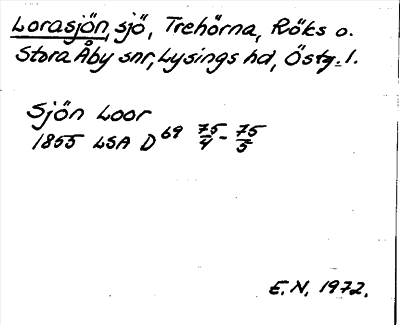 Lorasjön, sjö, Trehörna, Röks o.
Stora Åby snr, Lysings hd, Östg. l.
Sjön Loor
1855 LSA D 69 75/4 - 75/5
E.N. 1972.